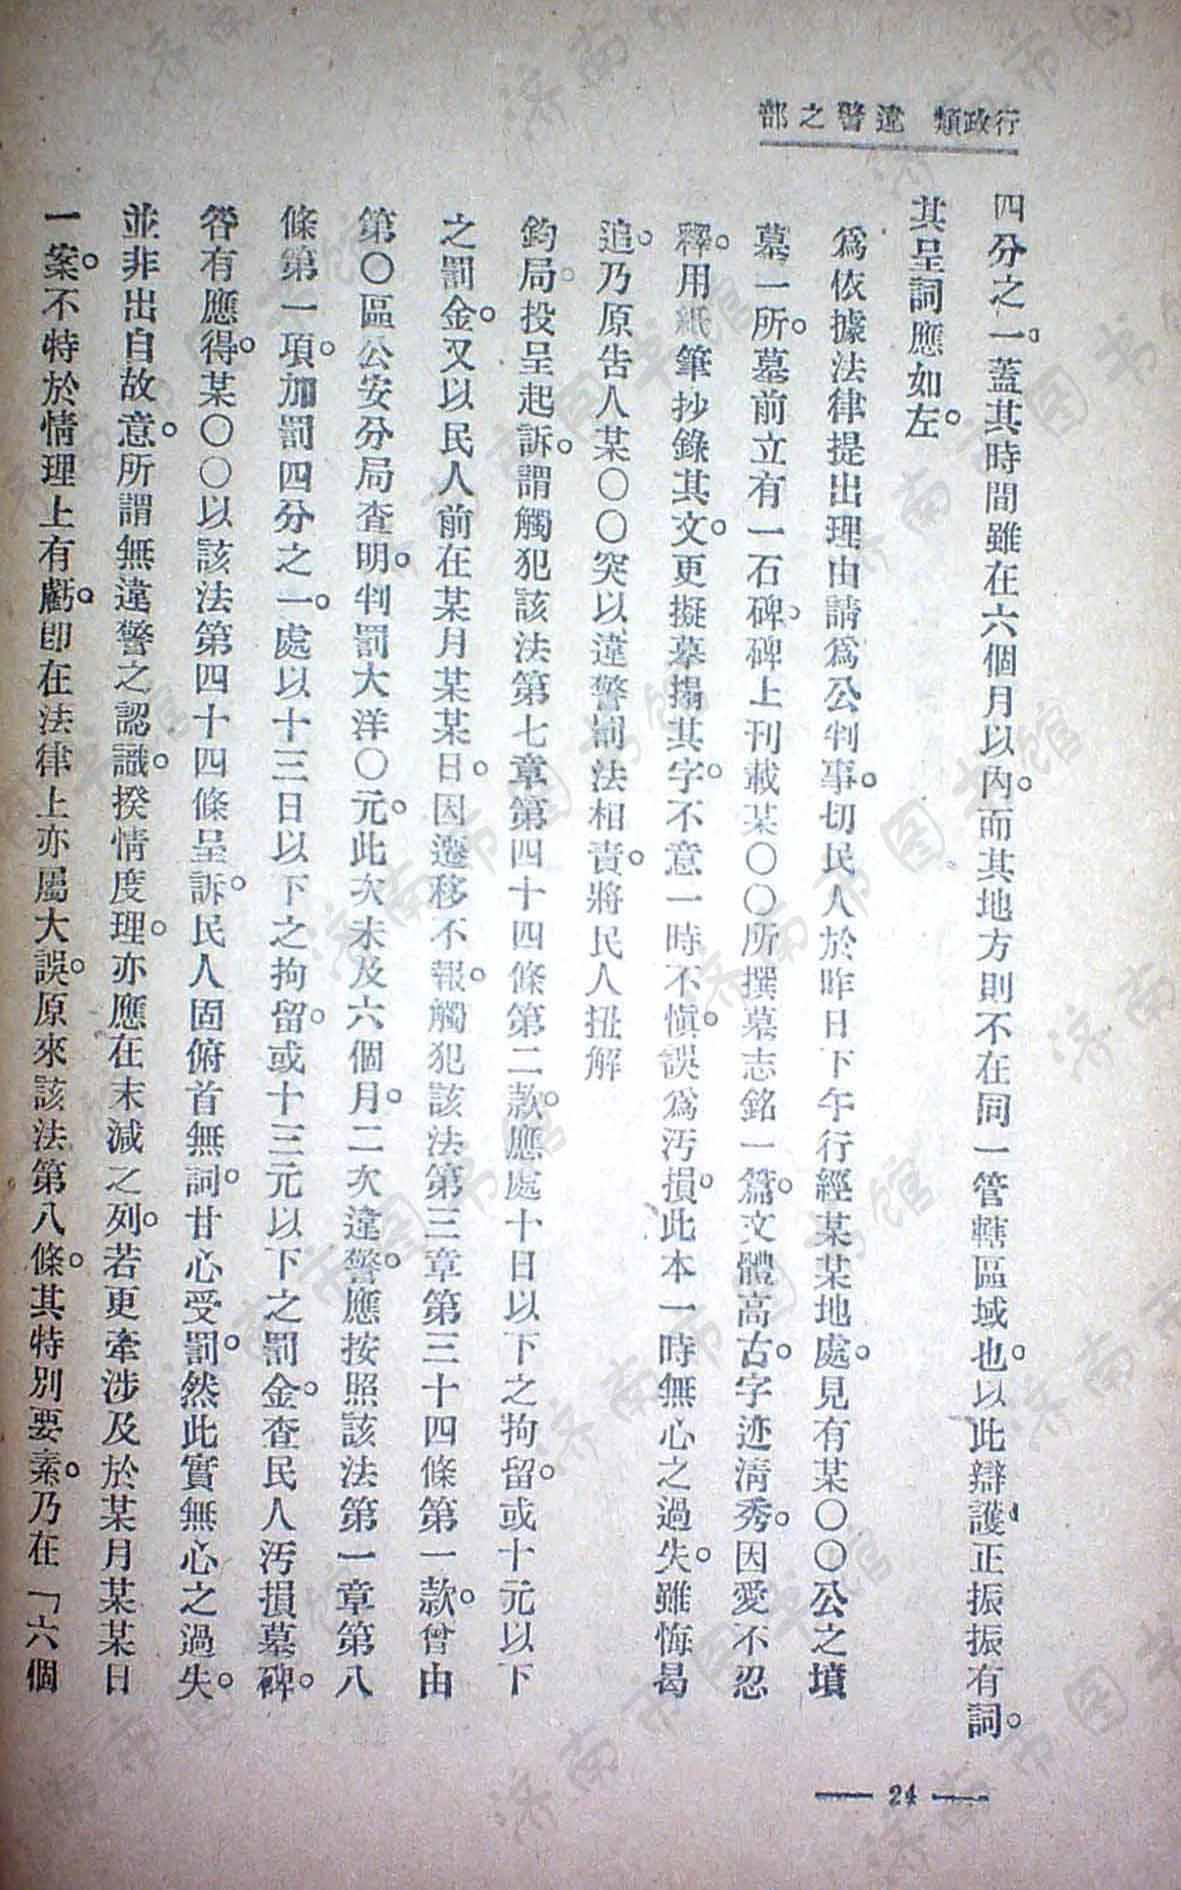 行政類 違警之部
四分之一。蓋其時間雖在六個月以內。而其地方則不在同一管轄區域也。以此辯護。正振振有詞。
其呈詞應如左。
爲依據法律提出理由請爲公判事。切民人於昨日下午行經某某地處。見有某〇〇公之墳
墓一所。墓前立有一石碑。碑上刊載某〇〇所撰墓志銘一篇。文體高古。字迹淸秀。因愛不忍
釋。用紙筆抄錄其文。更擬摹搨其字。不意一時不愼。誤爲汚損。此本一時無心之過失。雖悔曷
追。乃原告人某〇〇突以違警罰法相責。將民人扭解
鈞局。投呈起訴。謂觸犯該法第七章第四十四條第二款。應處十日以下之拘留。或十元以下
之罰金。又以民人前在某月某某日。因遷移不報。觸犯該法第三章第三十四條第一款。曾由
第〇區公安分局查明。判罰大洋〇元。此次未及六個月。二次違警。應按照該法第一章第八
條第一項。加罰四分之一。處以十三日以下之拘留。或十三元以下之罰金。查民人汚損墓碑。
咎有應得。某〇〇以該法第四十四條呈訴。民人固俯首無詞。甘心受罰。然此實無心之過失。
並非出自故意。所謂無違警之認識。揆情度理。亦應在末減之列。若更牽涉及於某月某某日
一案。不特於情理上有虧。卽在法律上亦屬大誤。原來該法第八條。其特別要素。乃在「六個
— 24 —
济南市图书馆